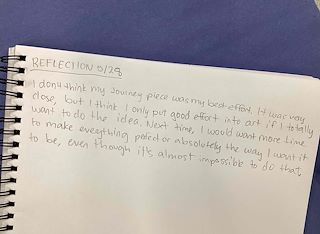 REFLECTION 5/28
I don't think my Journey piece was my best effort. It was very
close, but I think I only put good effort into art if I totally
want to do the idea. Next time, I would want more time
to make everything perfect or absolutely the way I want it
to be, even though it's almost impossible to do that.